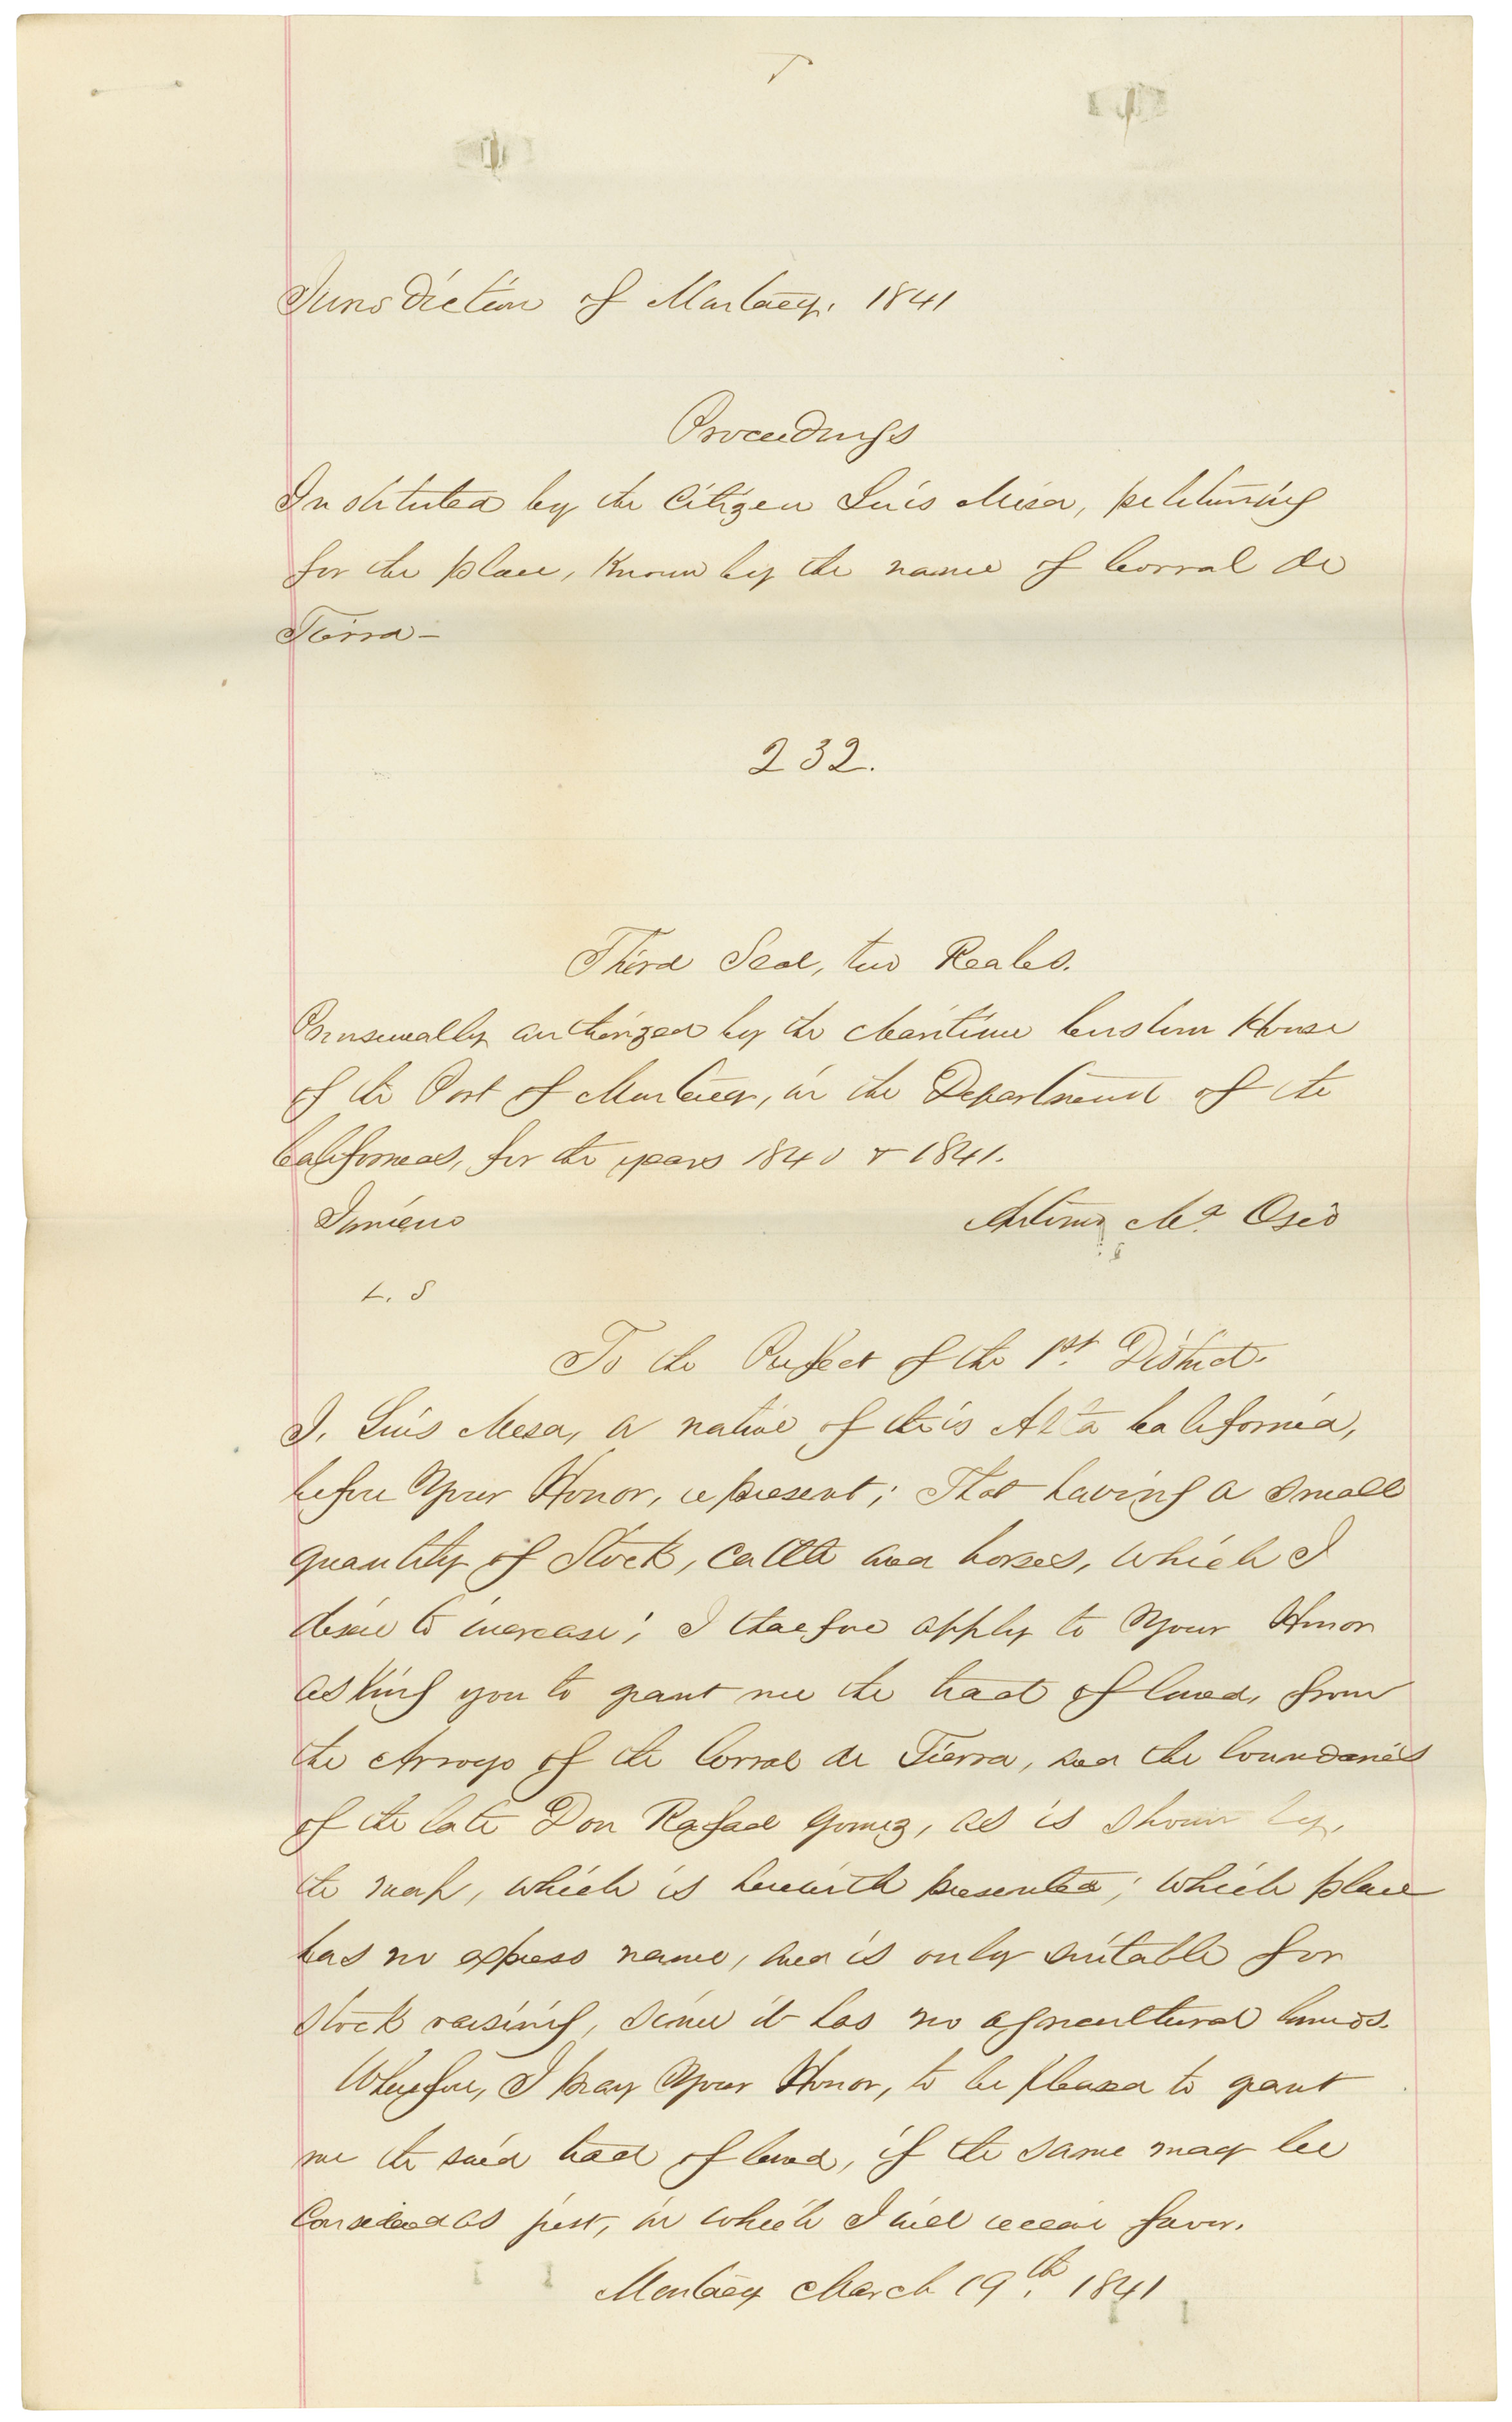 Jurisdiction of Monterey. 1841
Proceedings
Instituted by the Citizen Luis Mesa, petitioning
for the place, Known by the name of Corral de
Tierra -
232.
Third Seal, two Reales.
Provisionally authorized by the Maritime Custom House
of the Port of Monterey, in the Department of the
Californias, for the years 1840 & 1841.
Jimeno Antonio Ma. Osio
L. S
To the Prefect of the 1st. District.
I, Luis Mesa, a native of this Alta California,
before Your Honor, represent; That having a small
quantity of Stock, cattle and horses, which I
desire to increase; I therefore apply to Your Honor
asking you to grant me the tract of land, from
the Arroyo of the Corral de Tierra, and the boundaries
of the late Don Rafael Gomez, as is shown by,
the map, which is herewith presented; which place
has no express name, and is only suitable for
stock raising, since it has no agricultural lands.
Wherefore, I pray Your Honor, to be pleased to grant
me the said tract of land, if the same may be
Considered as just, in which I will receive favor.
Monterey March 19th. 1841